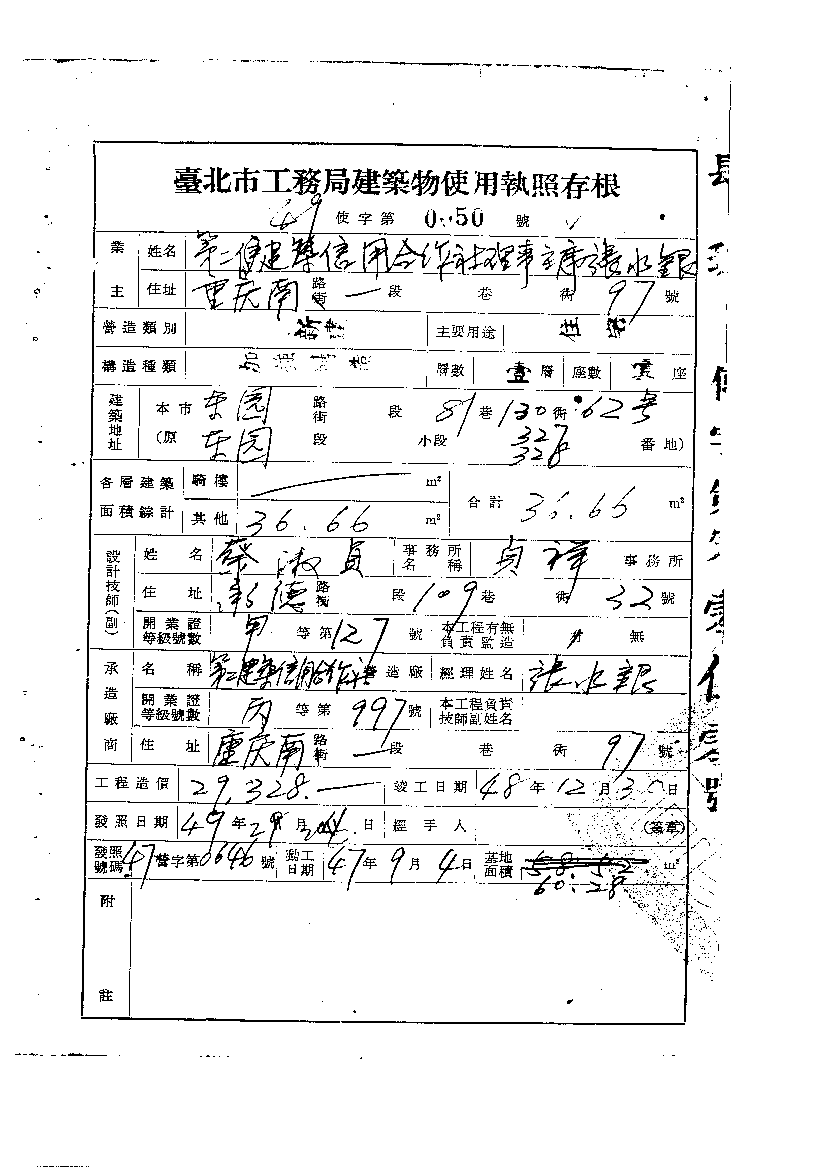 臺北市工務局建築物使用執照存根
49 使字第 0050 號
業主 姓名 第二建築信用合作社理事主席張水銀
住址 重庆南 路街 一 段 巷 衖 97 號
營造類別 新建 主要用途 住宅
構造種類 加強磚造 層數 壹 層 座數 座
建築地址 本市 东园 路街 段 81 巷 130 衖 62号
(原 东园 段 小段 327 328 番地)
各層建築面積綜計 騎樓 m² 合計 36.66 m²
其他 36.66 m²
設計技師(副) 姓名 蔡淑貞 事務所名稱 貞祥 事務所
住址 彰德 路街 段 109 巷 衖 32 號
開業證等級號數 甲 等第 127 號 本工程有無負責監造 有 無
承造廠商 名稱 第二建築信用合作社 營造廠 經理姓名 張水銀
開業證等級號數 丙 等第 997 號 本工程負責技師副姓名
住址 重庆南 路街 一 段 巷 衖 97 號
工程造價 29,328.— 竣工日期 48 年 12 月 30 日
發照日期 49 年 月 日 經手人 (簽章)
發照號碼 47 營字第 0646 號 動工日期 47 年 9 月 4 日 基地面積 58.52 60.28 m²
附註